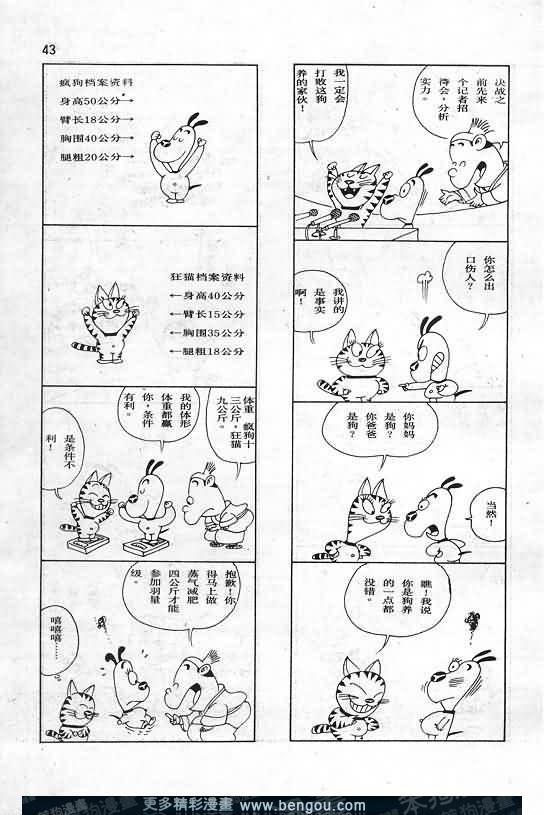 43
决战之
前先来
个记者招
待会,分析
实力。
我一定会
打败这狗
养的家伙!
你怎么出
口伤人?
我讲的
是事实
啊!
你妈妈
是狗?
你爸爸
是狗?
当然!
瞧!我说
你是狗养
的一点都
没错。
疯狗档案资料
身高50公分→
臂长18公分→
胸围40公分→
腿粗20公分→
狂猫档案资料
←身高40公分
←臂长15公分
←胸围35公分
←腿粗18公分
体重 疯狗十
三公斤,狂猫
九公斤。
我的体形
体重都赢
你,条件
有利。
是条件不
利!
抱歉!你
得马上做
蒸气减肥
四公斤才能
参加羽量
级。
嘻嘻嘻……
笨狗漫畫
更多精彩漫畫 www.bengou.com
笨狗漫畫